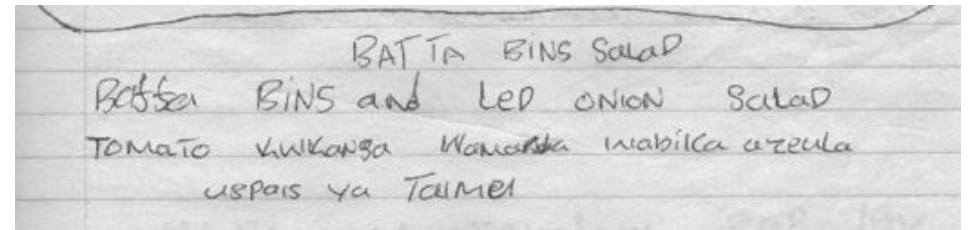 BATTA BINS SalaD
Batta BINS and LeD ONION SalaD
TOMATO KWKanga Wamanda wabilka azeula
uspais ya Taimei